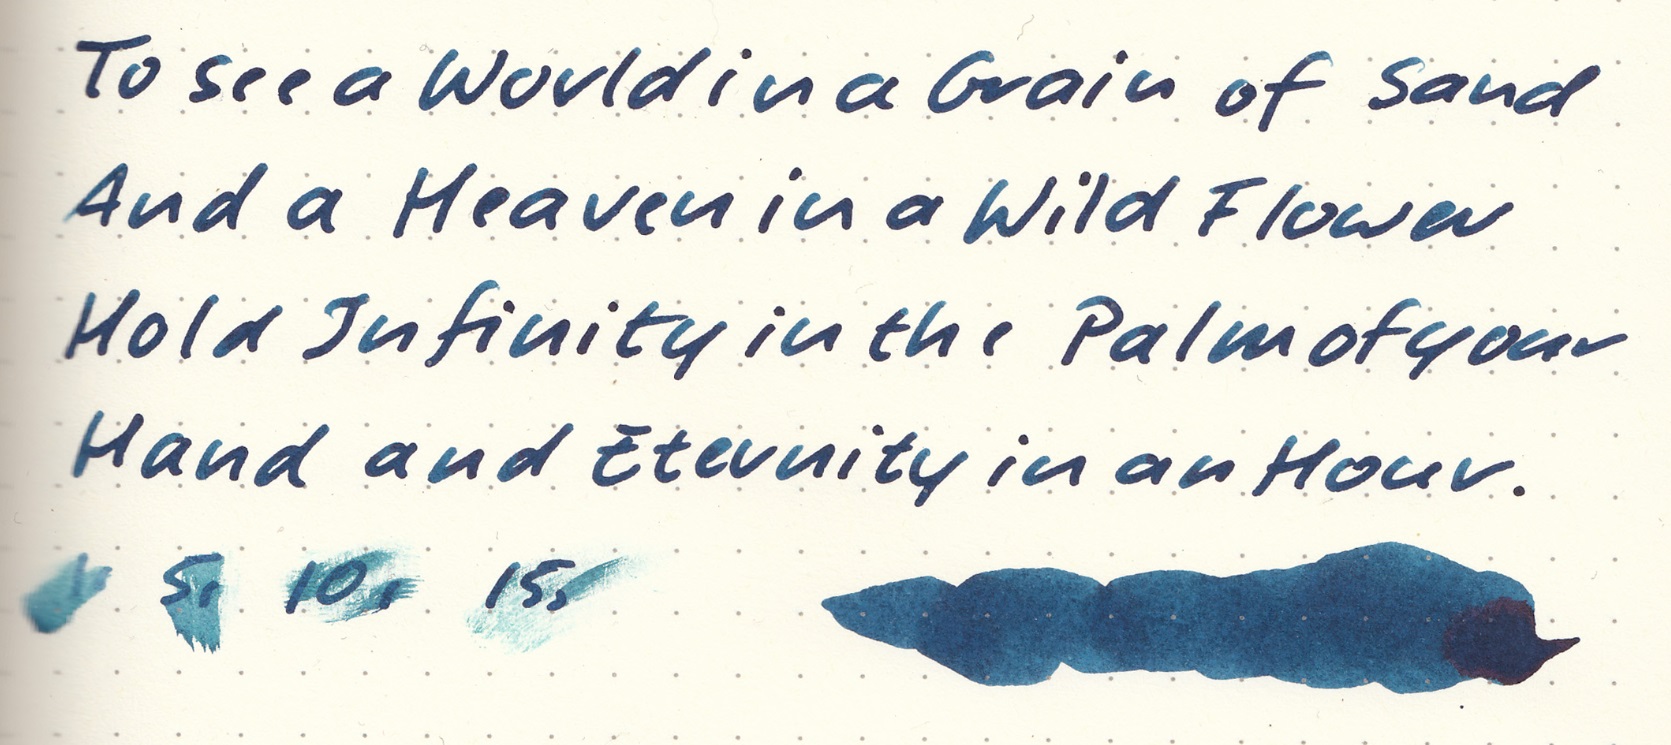 To see a World in a Grain of Sand
And a Heaven in a Wild Flower
Hold Infinity in the Palm of your
Hand and Eternity in an Hour.
5, 10, 15,